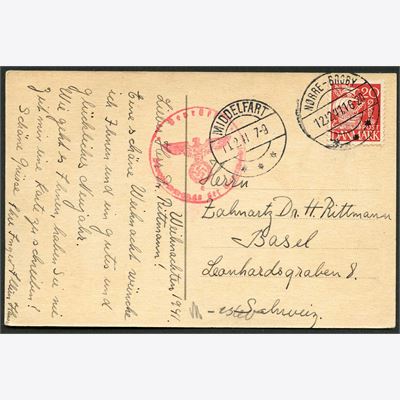 Weihnachten 1941.
Lieber Herr Dr. Rittmann!
Eine schöne Weihnacht wünsche
ich Ihnen und ein gutes und
glückliches Neujahr.
Wie geht es Ihnen, haben Sie nie
Zeit mir eine Karte zu schreiben!
Schöne Grüsse
Ihre Inger
Geprüft
MIDDELFART
7-9
NØRRE-BROBY
20
DANMARK
Herrn
Zahnartz Dr. H. Rittmann
Basel
Leonhardsgraben 8.
Schweiz.